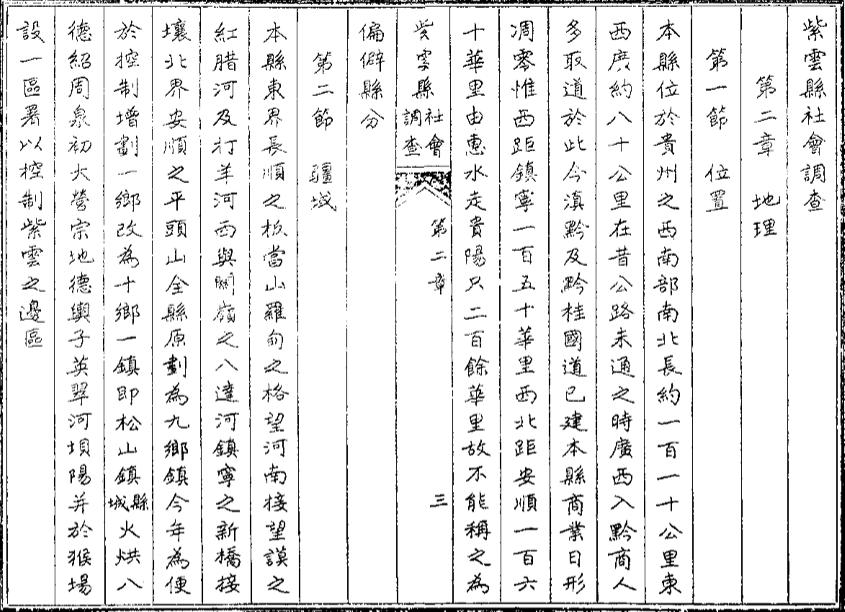 紫雲縣社會調查
第二章　地理
第一節　位置
本縣位於貴州之西南部南北長約一百一十公里東
西廣約八十公里在昔公路未通之時廣西入黔商人
多取道於此今滇黔及黔桂國道已建本縣商業日形
凋零惟西距鎮寧一百五十華里西北距安順一百六
十華里由惠水走貴陽只二百餘華里故不能稱之為
紫雲縣社會調查　第二章　三
偏僻縣分
第二節　疆域
本縣東界長順之板當山羅甸之格望河南接望謨之
紅腊河及打羊河西與關嶺之八達河鎮寧之新橋接
壤北界安順之平頭山全縣原劃為九鄉鎮今年為便
於控制增劃一鄉改為十鄉一鎮即松山鎮縣城火烘八
德紹周泉初火營宗地德輿子英翠河垻陽并於猴場
設一區署以控制紫雲之邊區